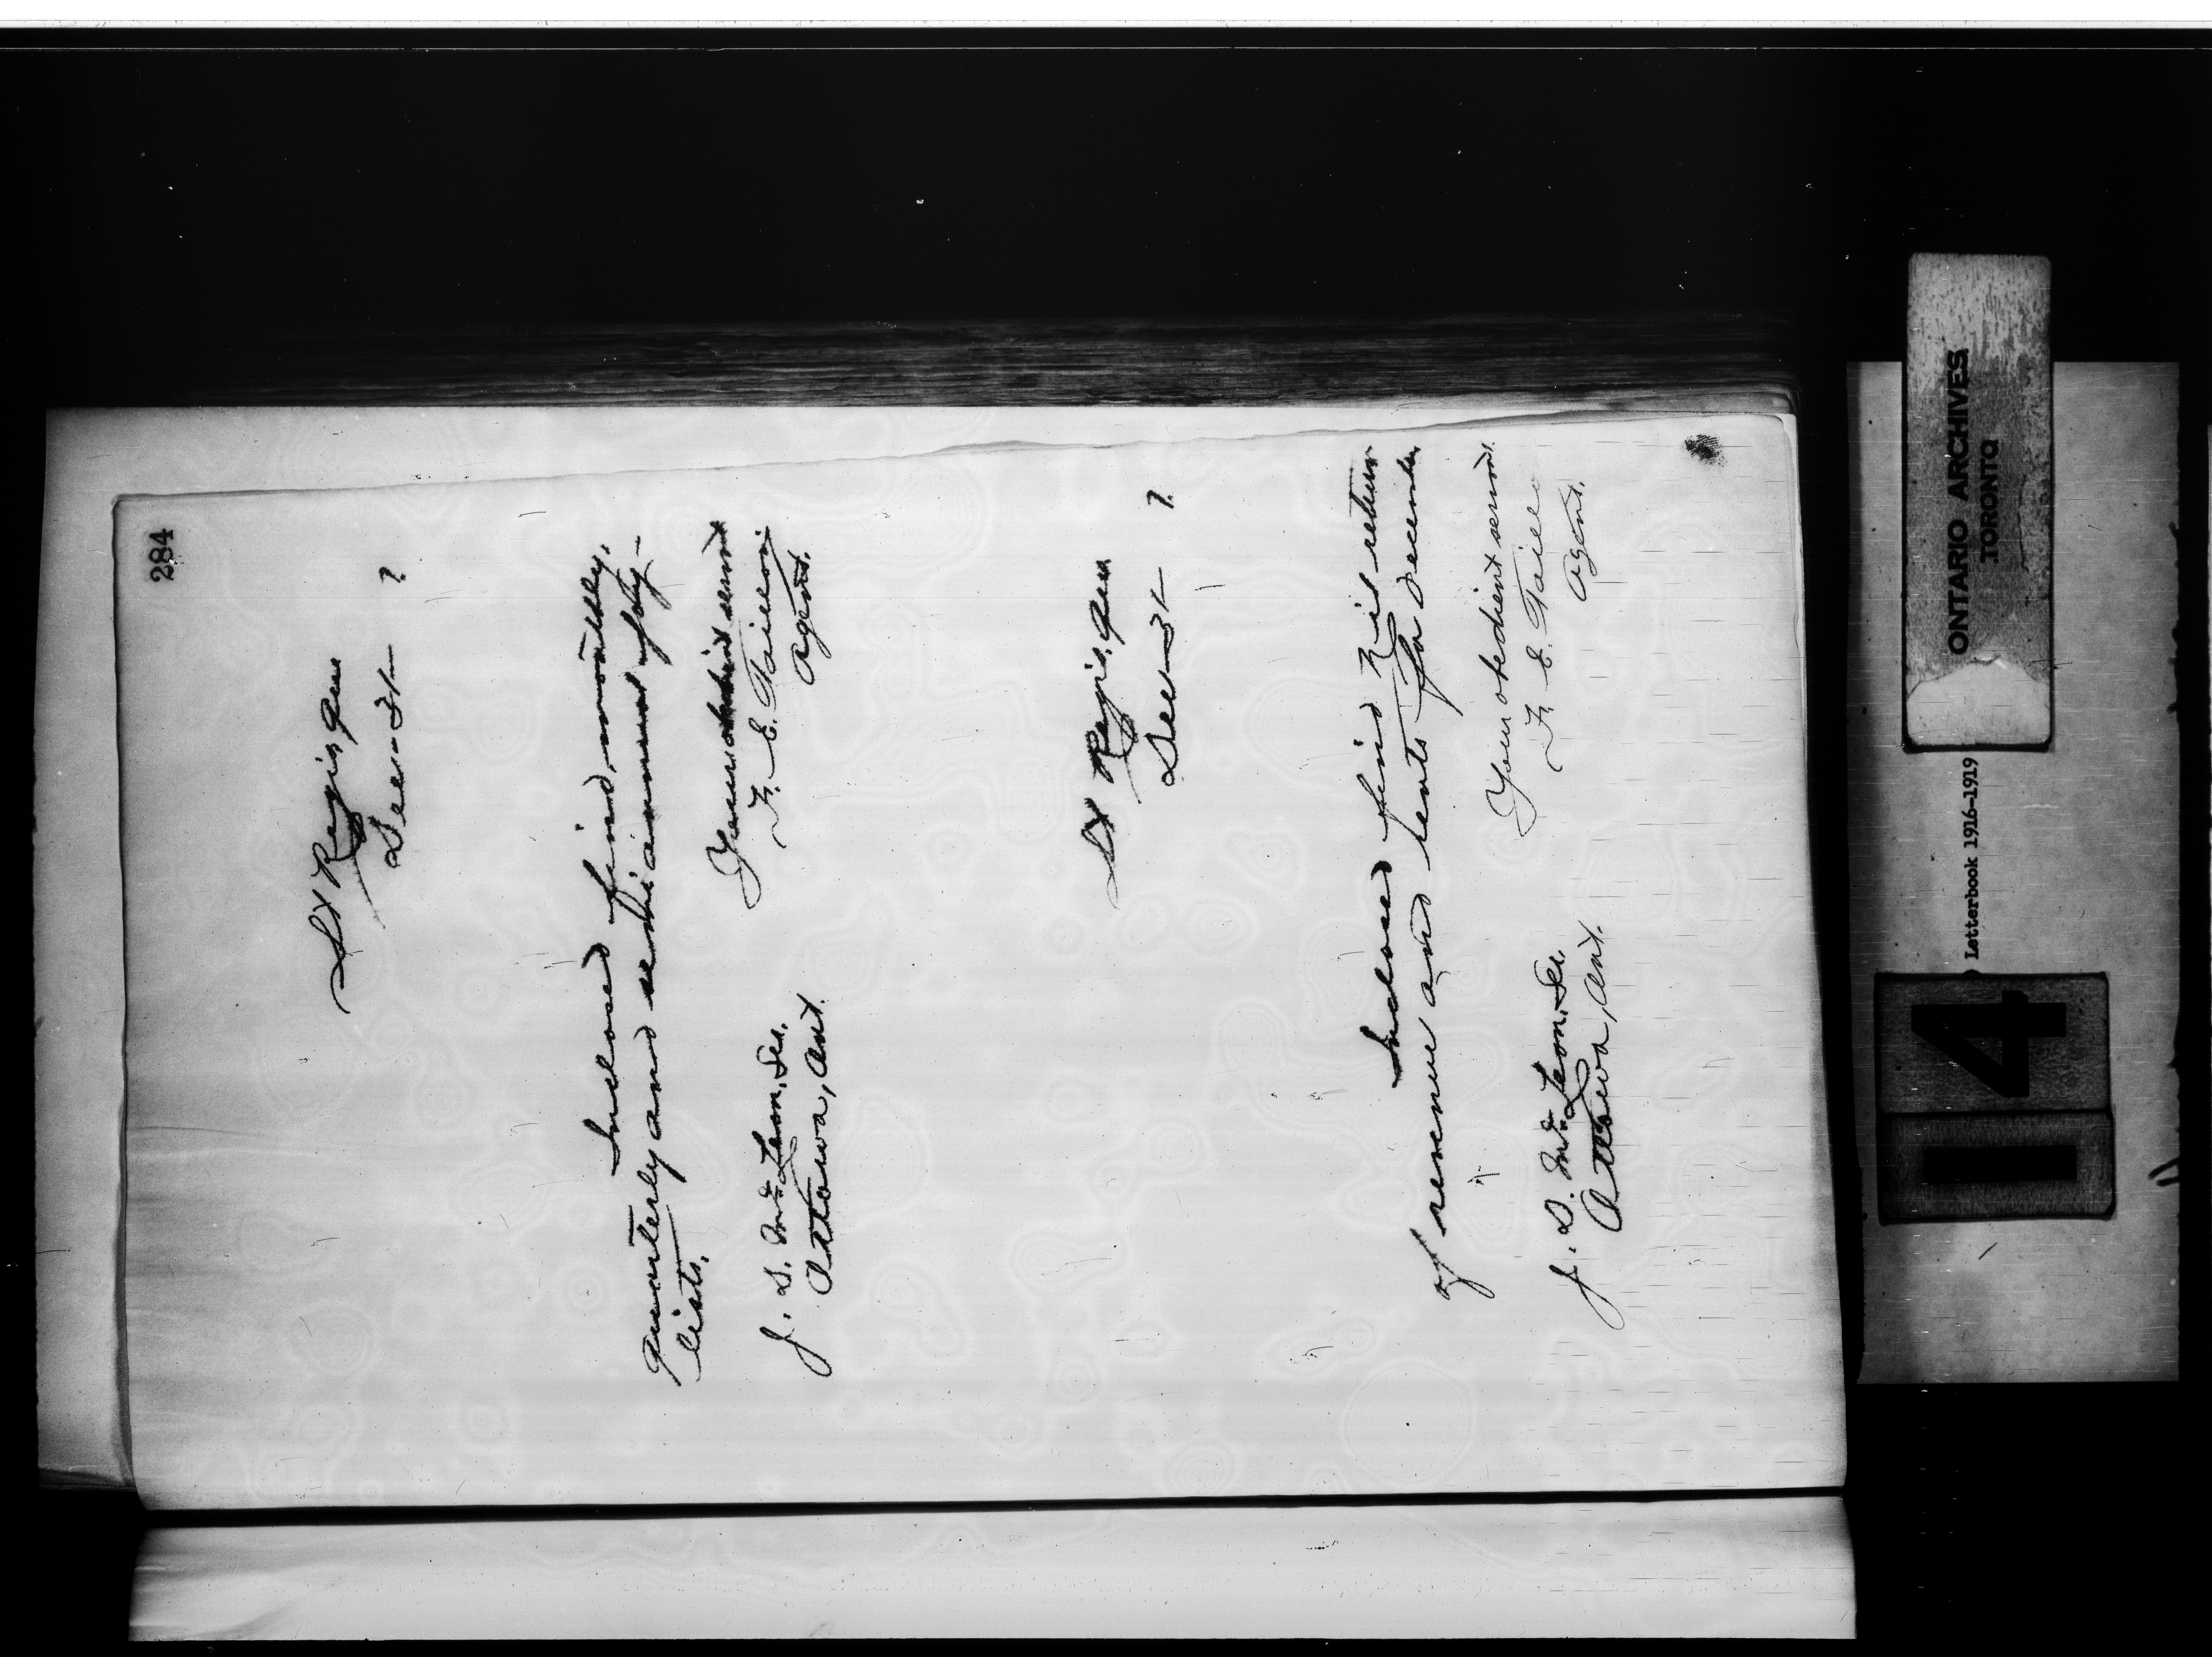 284
St Regis, Que
Dec 31 7
Inclosed find, monthly,
quarterly and semi annual pay-
lists.
Your obedient servnt
F. E. Taillon
Agent.
J. D. McLean, Sec.
Ottawa, Ont.
St Regis, Que
Dec 31 7
Inclosed find Nil return
of revenue and rents for December
Your obedient servnt.
F. E. Taillo
Agent.
J. D. McLean, Sec.
Ottawa, Ont.
ONTARIO ARCHIVES
TORONTO
Letterbook 1916-1919
14